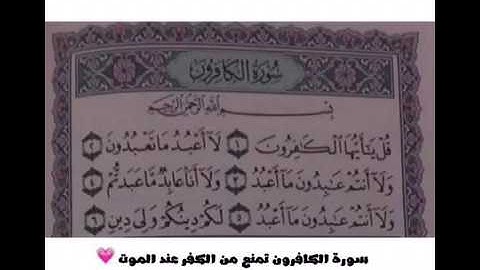 سورة الكافرون
بسم الله الرحمن الرحيم
قُلْ يَٰٓأَيُّهَا ٱلْكَٰفِرُونَ ١ لَآ أَعْبُدُ مَا تَعْبُدُونَ ٢
وَلَآ أَنتُمْ عَٰبِدُونَ مَآ أَعْبُدُ ٣ وَلَآ أَنَا۠ عَابِدٌ مَّا عَبَدتُّمْ ٤
وَلَآ أَنتُمْ عَٰبِدُونَ مَآ أَعْبُدُ ٥ لَكُمْ دِينُكُمْ وَلِىَ دِينِ ٦
سورة الكافرون تمنع من الكفر عند الموت 💗